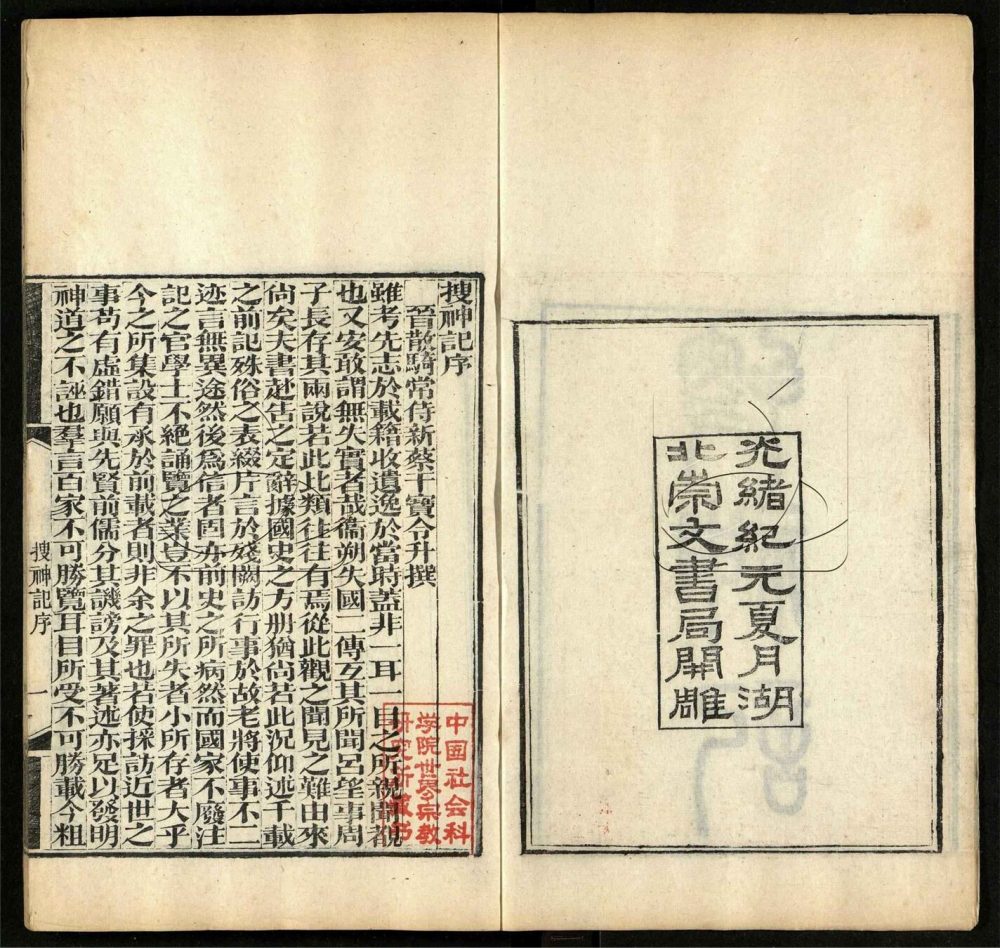 光緒紀元夏月湖
北崇文書局開雕
搜神記序
晉散騎常侍新蔡干寶令升撰
雖考先志於載籍收遺逸於當時蓋非一耳一目之所親聞覩
也又安敢謂無失實者哉衞朔失國二傳互其所聞呂望事周
子長存其兩說若此比類往往有焉從此觀之聞見之難由來
尚矣夫書赴告之定辭據國史之方册猶尚若此況仰述千載
之前記殊俗之表綴片言於殘闕訪行事於故老將使事不二
迹言無異途然後爲信者固亦前史之所病然而國家不廢注
記之官學士不絕誦覽之業豈不以其所失者小所存者大乎
今之所集設有承於前載者則非余之罪也若使採訪近世之
事苟有虛錯願與先賢前儒分其譏謗及其著述亦足以發明
神道之不誣也羣言百家不可勝覽耳目所受不可勝載今粗
搜神記序
一
中国社会科
学院世界宗教
研究所藏书